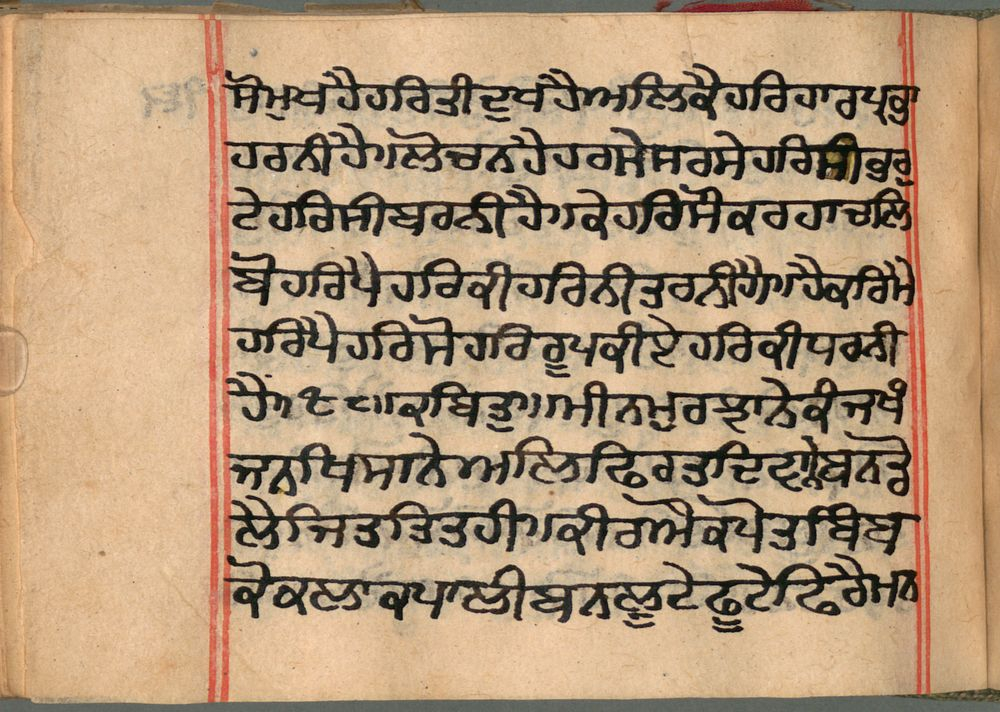 ਸੋਮੁਖਹੈਹਰਿਤੀਦੁਖਹੈਅਲਿਕੈਹਰਿਹਾਰਪ੍ਰਭਾ
ਹਰਨੀਹੈ॥ਲੋਚਨਹੈਹਰਸੇਸਰਸੇਹਰਿਸੀਭਰੁ
ਟੇਹਰਿਸੀਬਰਨੀਹੈ॥ਕੇਹਰਿਸੋਕਰਹਾਚਲਿ
ਬੋਹਰਿਪੈਹਰਿਕੀਹਰਿਨੀਤਰਨੀਹੈ॥ਹੈਕਰਿਮੈ
ਹਰਿਪੈਹਰਿਸੋਹਰਿਰੂਪਕੀਏਹਰਿਕੀਧਰਨੀ
ਹੈ॥੮੮॥ਕਬਿਤੁ॥ਮੀਨਮੁਰਝਾਨੇਕੰਜਖੰ
ਜਨਖਿਸਾਨੇਅਲਿਫਿਰਤਦਿਵਾਨੇਬਨਡੋ
ਲੈਜਿਤਤਿਤਹੀ॥ਕੀਰਔਕਪੋਤਬਿੰਬ
ਕੋਕਲਾਕਪਾਲੀਬਨਲੂਟੇਫੂਟੇਫਿਰੈਮਨ